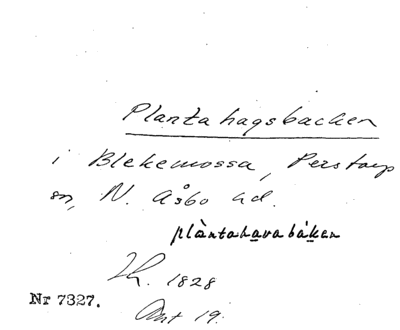 Plantahagsbacken
i Blekemossa, Perstorp
sn, N. Åsbo hd.
plàntahavabáken
1828
Nr 7327.
19.